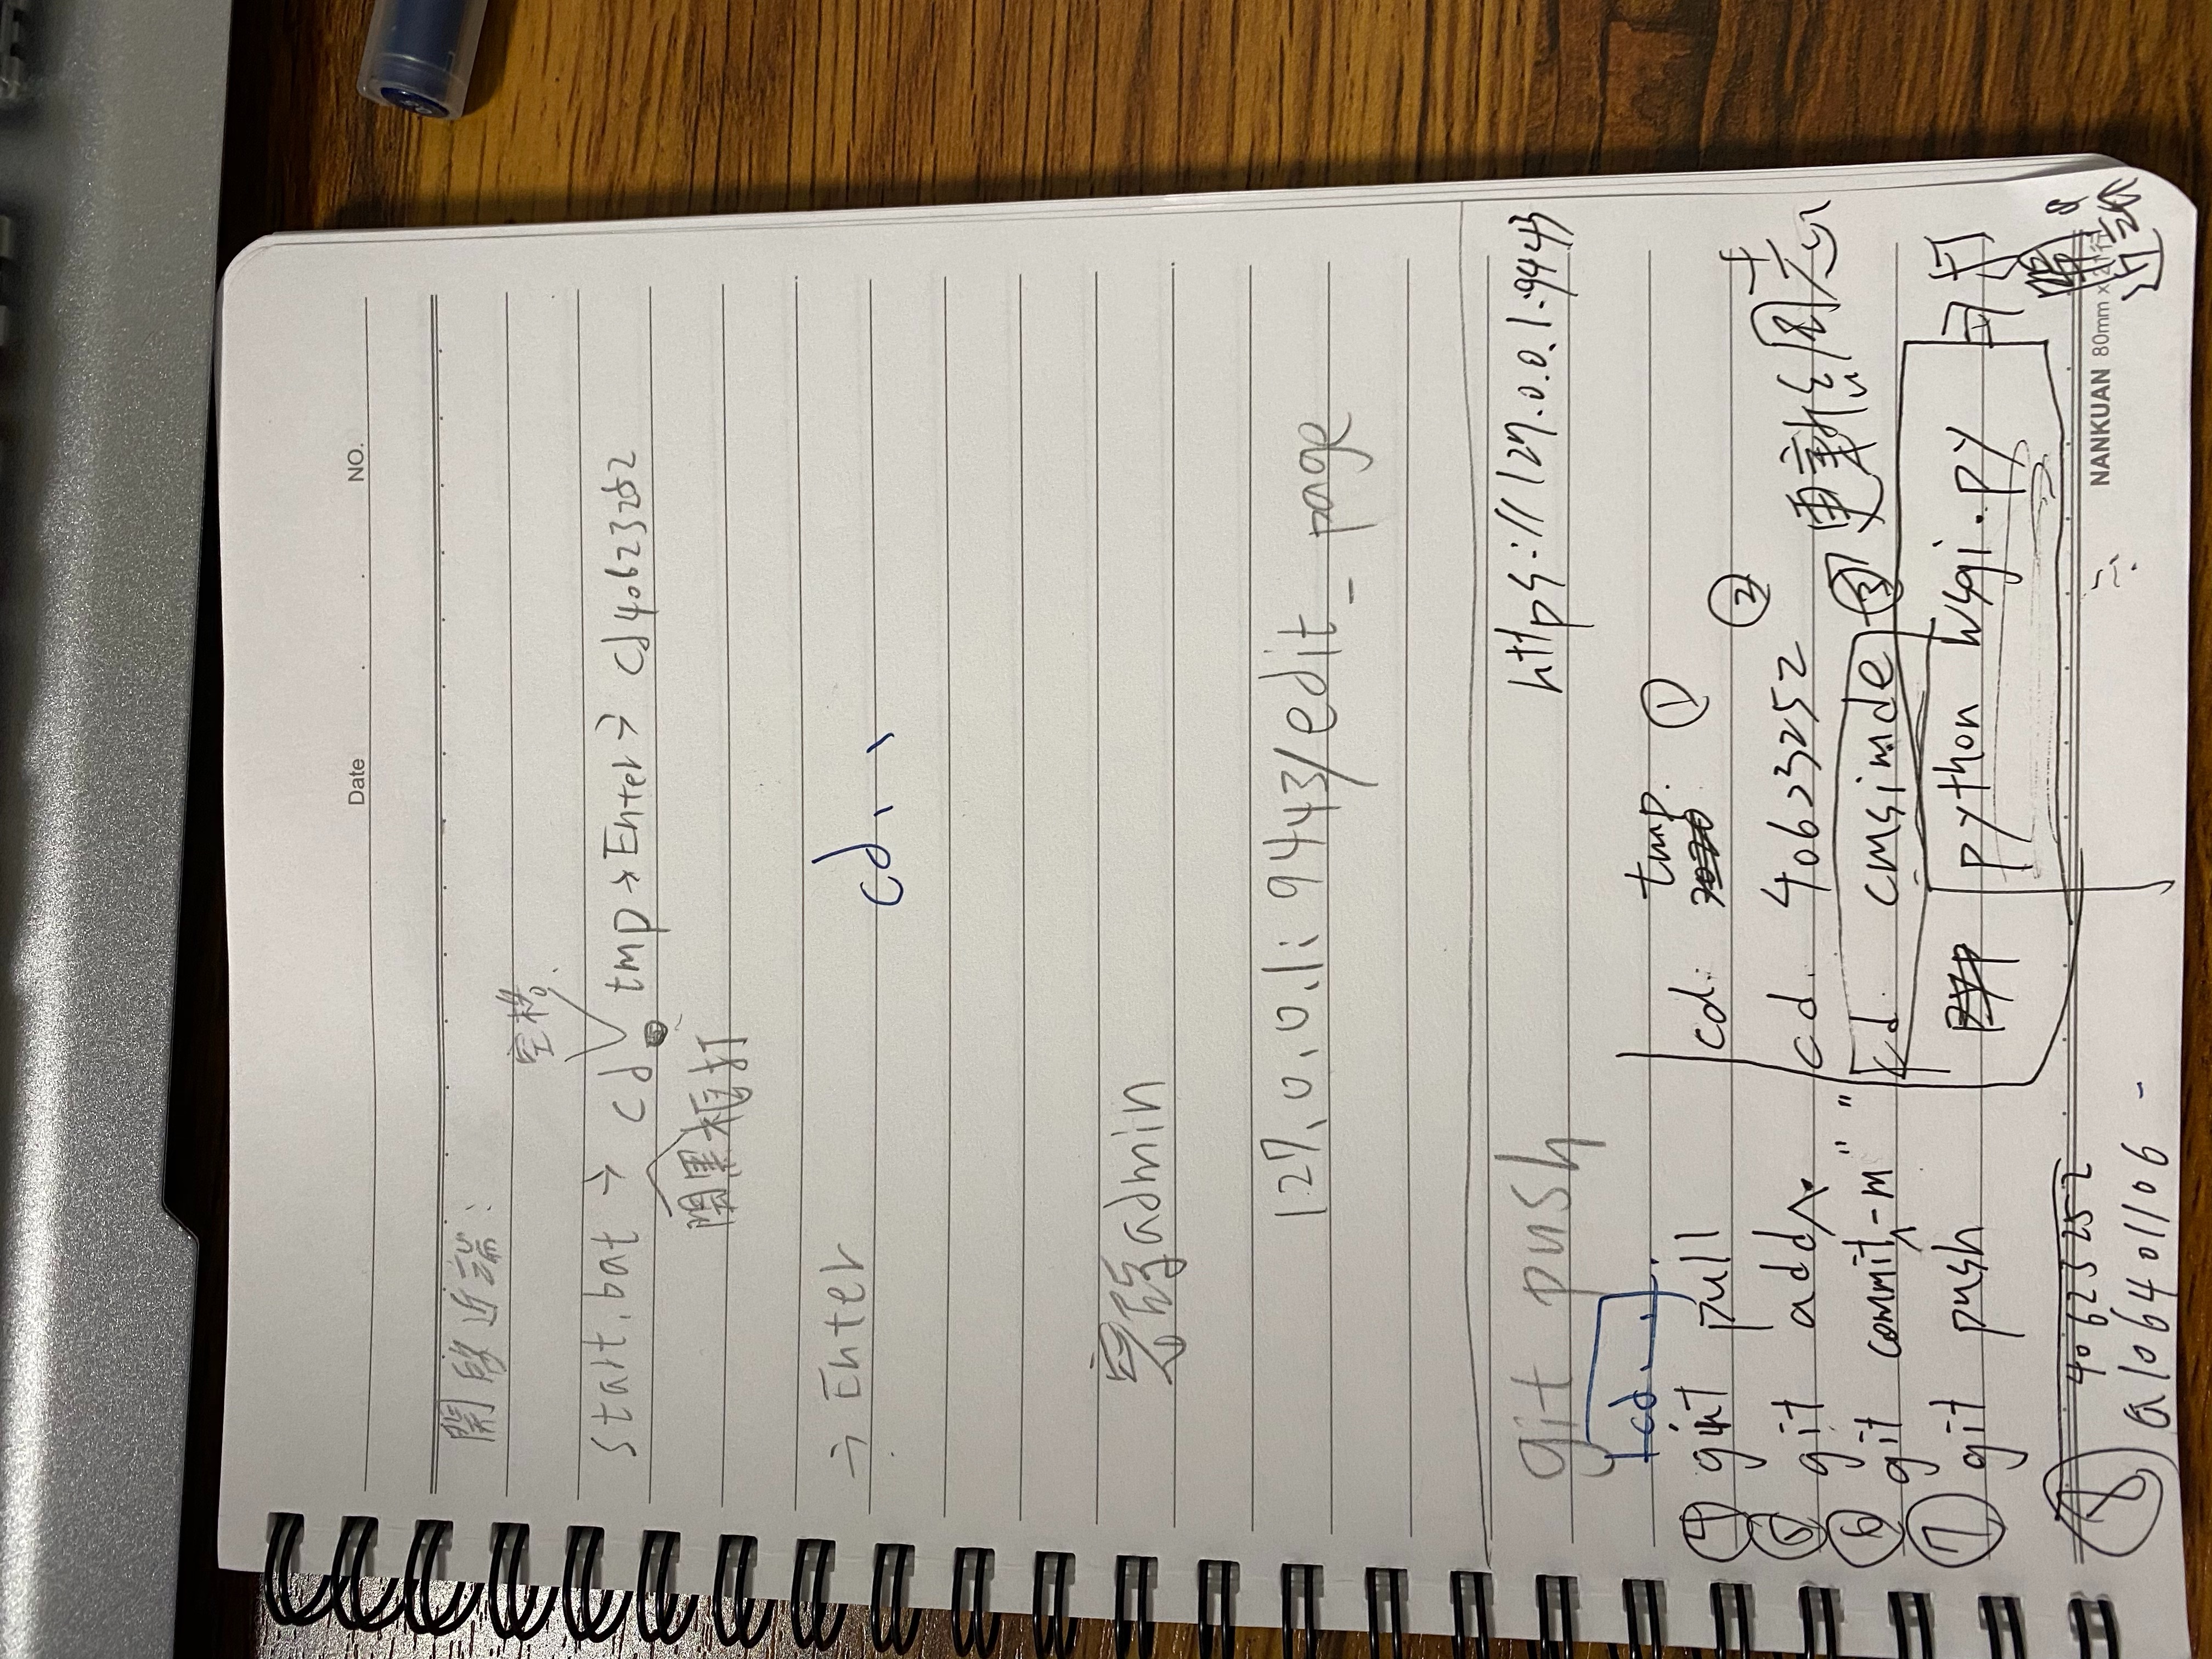 Date . . NO.
開啟近端:
空格
start.bat → cd tmp → Enter → cd 40623252
開黑框打
→ Enter
cd..
密碼admin
127.0.0.1:9443/edit_page
git push
https://127.0.0.1:9443
cd..
④ git pull
⑤ git add .
⑥ git commit -m " "
⑦ git push
⑧ 40623252
a106401106
cd. tmp. ①
cd. 40623252 ②
cd. cmsimde ③ 更新
python wsgi.py ⇒ 打
開
近端
NANKUAN 80mm x 21行